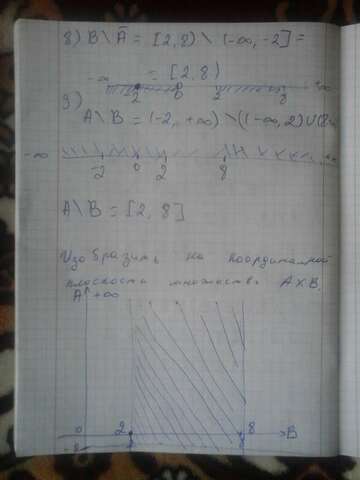 8) B \ Ā = [2, 8) \ (-∞, -2] =
= [2, 8)
-∞ -2 0 2 8 +∞
9)
A \ B = (-2, +∞) \ ((-∞, 2) ∪ (8
-∞ -2 0 2 8
A \ B = [2, 8]
Изобразить на координатной
плоскости множество A×B.
A +∞
0 2 8 B
-2